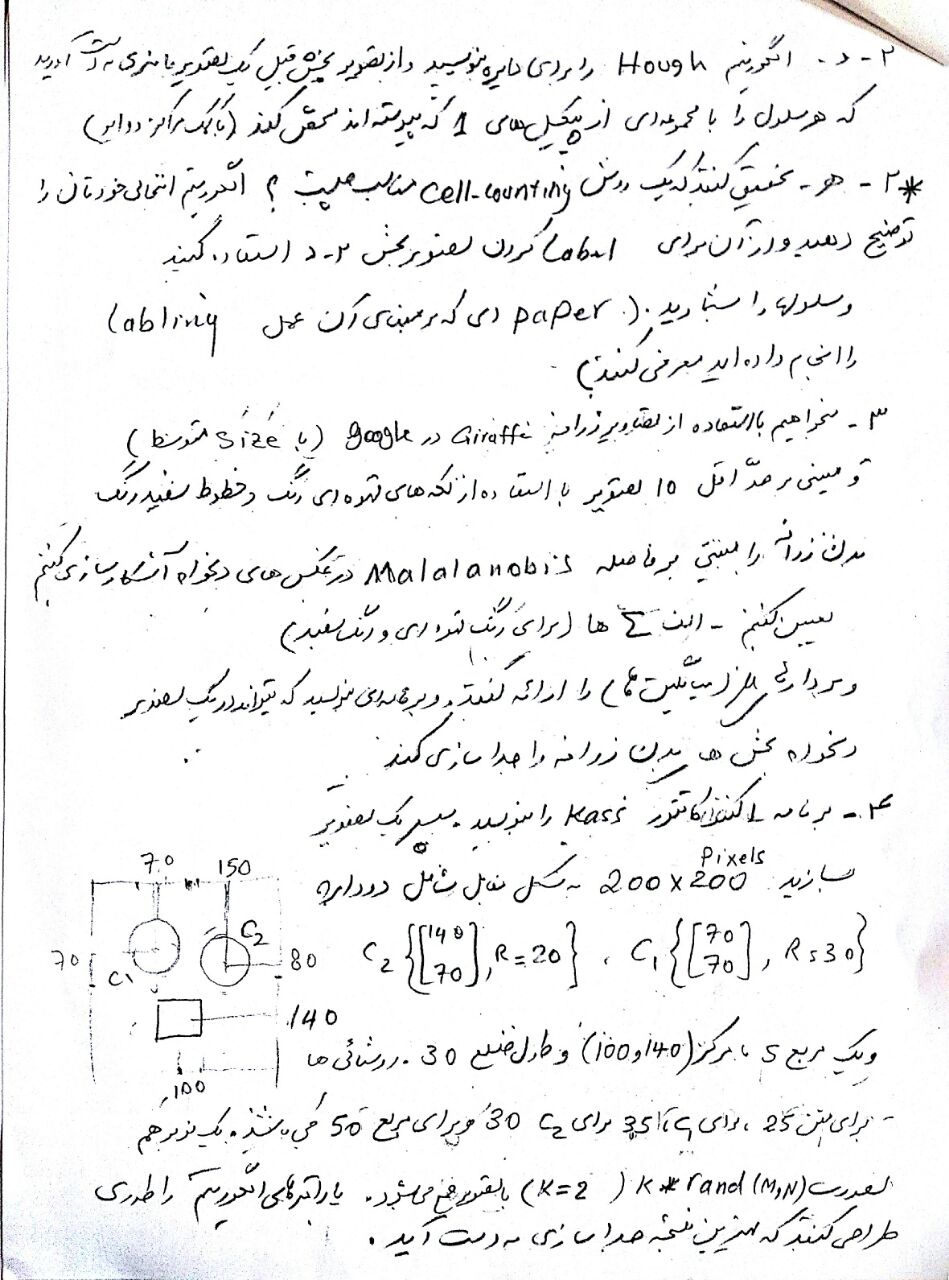 ۲-د- الگوریتم Hough را برای دایره بنویسید و از تصویر بخش قبل یک تصویر باینری به دست آورید
که هر سلول را با مجموعه‌ای از پیکسل‌های 1 که پیوسته‌اند مشخص کند (با کمک مراکز دوایر)
*۲- هـ - تحقیق کنید که یک روش cell-counting مناسب چیست؟ الگوریتم انتخابی خودتان را
توضیح دهید و از آن برای Label کردن تصویر بخش ۲-د استفاده کنید
و سلولها را بشمارید. (paper ای که بر مبنای آن عمل labling
را انجام داده‌اید معرفی کنید)
۳- میخواهیم با استفاده از تصاویر زرافه Giraffe در google (با size متوسط)
و مبنی بر حداقل 10 تصویر با استفاده از لکه‌های قهوه‌ای رنگ و خطوط سفید رنگ
بدن زرافه را مبتنی بر فاصله Malalanobis در عکس‌های دلخواه آشکارسازی کنیم
تعیین کنیم - الف Σ ها (برای رنگ قهوه‌ای و رنگ سفید)
و بردارهای μ (میانگین‌ها) را ارائه کنید و برنامه‌ای بنویسید که بتواند در یک تصویر
دلخواه بخش‌ها بدن زرافه را جداسازی کند
۴- برنامه اکتیو کانتور Kass را بنویسید. سپس یک تصویر
بسازید 200x200 Pixels به شکل مقابل شامل دو دایره
C1 {[70 70], R=30} , C2 {[140 70], R=20}
70 150
C2
70 C1 80
140
100
و یک مربع S با مرکز (100و140) و طول ضلع 30. روشنائی ها
- برای متن 25، برای C1 35، برای C2 30 و برای مربع 50 می باشد. یک نویز هم
بصورت K*rand(M,N) (K=2) با تصویر جمع می‌شود. پارامترهای الگوریتم را طوری
طراحی کنید که بهترین نتیجه جداسازی به دست آید.